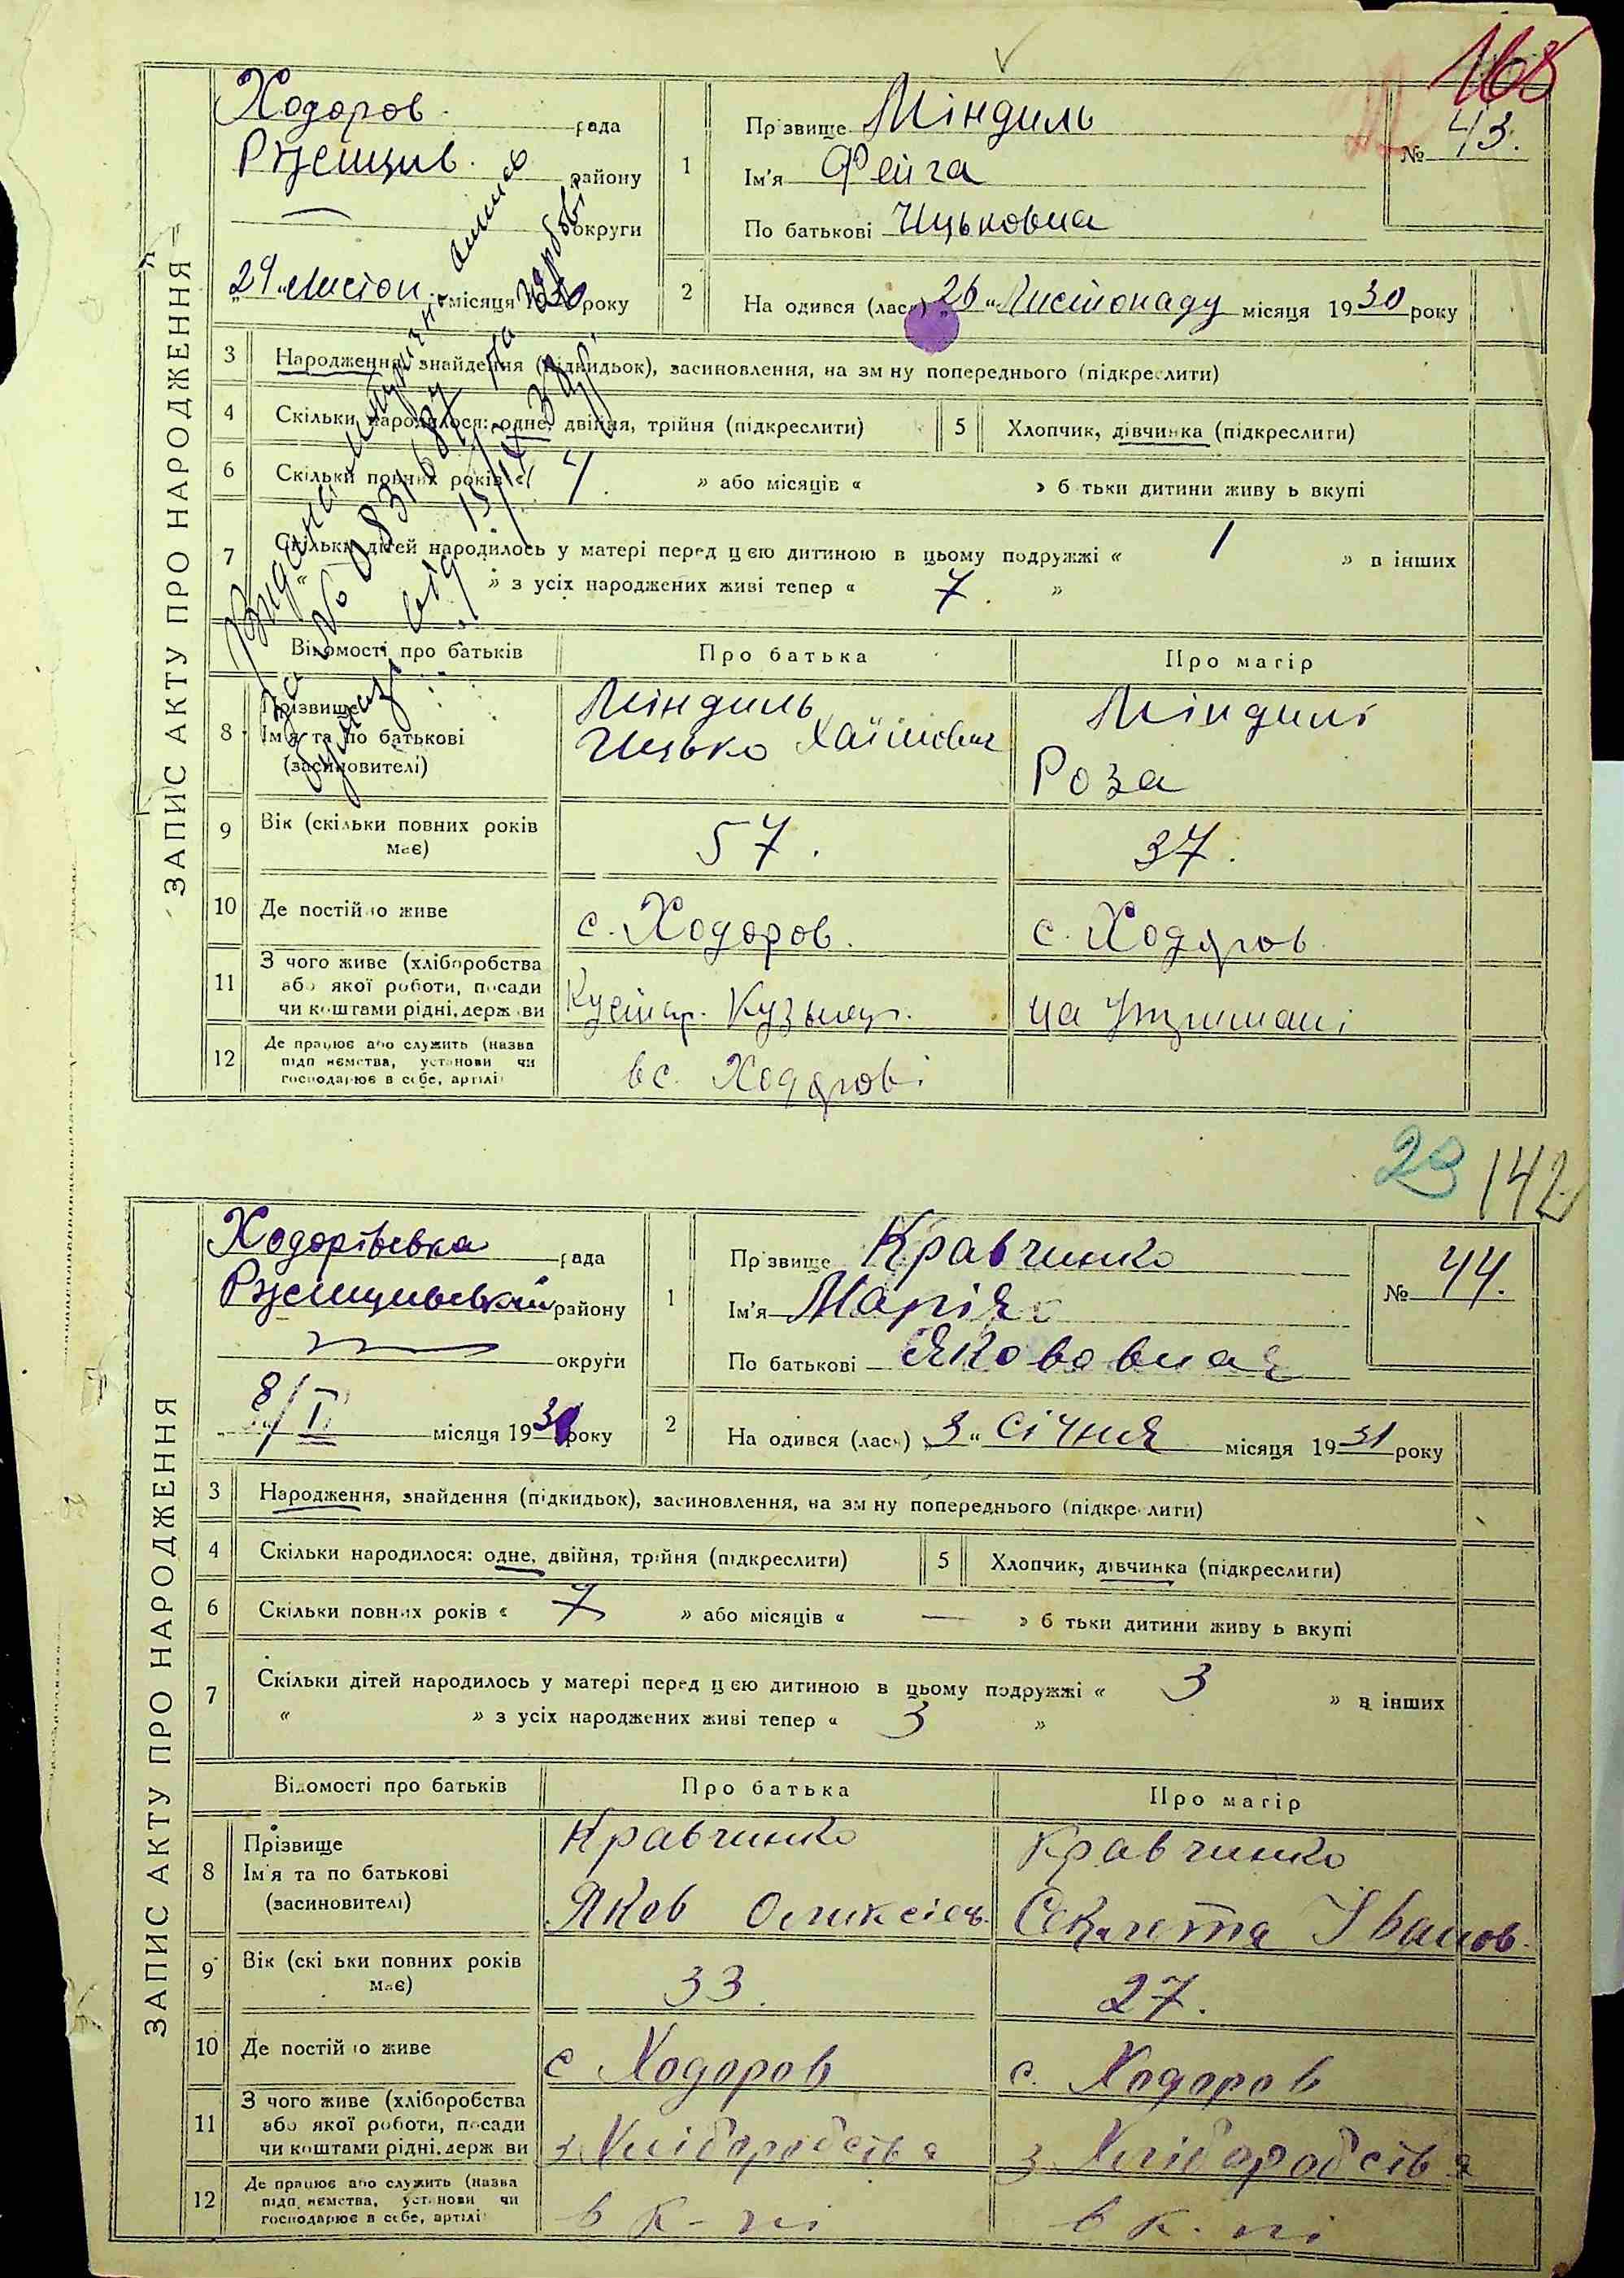 168
Ходоров рада
Ржищив району
округи
"29" листоп. місяця 1930 року
1
Прізвище Міндиль
Ім'я Фейга
По батькові Ицьковна
№ 43.
2
На одився (лась) "26" Листопаду місяця 1930 року
ЗАПИС АКТУ ПРО НАРОДЖЕННЯ
3 Народження, знайдення (підкидьок), засиновлення, на зм ну попереднього (підкреслити)
4 Скільки народилося: одне, двійня, трійня (підкреслити)
5 Хлопчик, дівчинка (підкреслити)
6 Скільки повних років « » або місяців « » б тьки дитини живу ь вкупі
7 Скільки дітей народилось у матері перед ц єю дитиною в цьому подружжі « 1 » в інших
« » з усіх народжених живі тепер « 7. »
Відомості про батьків Про батька Про матір
8 Прізвище
Ім'я та по батькові
(засиновителі)
Міндиль
Ицько Хаїмович
Міндилі
Роза
9 Вік (скільки повних років
має)
57.
37.
10 Де постійно живе
с. Ходоров.
с. Ходоров.
11 З чого живе (хліборобства
або якої роботи, посади
чи коштами рідні, держ ви
Кустар. Кузнец.
на утримані
12 Де працює або служить (назва
підп ємства, установи чи
господарює в себе, артілі
в с. Ходорові
23 142
Ходорівська рада
Ржищивський району
округи
8/I місяця 1931 року
1
Прізвище Кравчинко
Ім'я Марія
По батькові Якововна
№ 44.
2
На одився (лась) "3" Січня місяця 1931 року
ЗАПИС АКТУ ПРО НАРОДЖЕННЯ
3 Народження, знайдення (підкидьок), засиновлення, на зм ну попереднього (підкре лити)
4 Скільки народилося: одне, двійня, трійня (підкреслити)
5 Хлопчик, дівчинка (підкреслити)
6 Скільки повних років « 7 » або місяців « — » б тьки дитини живу ь вкупі
7 Скільки дітей народилось у матері перед ц єю дитиною в цьому подружжі « 3 » в інших
« » з усіх народжених живі тепер « 3 »
Відомості про батьків Про батька Про матір
8 Прізвище
Ім'я та по батькові
(засиновителі)
Кравчинко
Яков Оликсієв.
Кравчинко
Секлета Іванов.
9 Вік (скі ьки повних років
має)
33.
27.
10 Де постій о живе
с Ходоров
с. Ходоров
11 З чого живе (хліборобства
або якої роботи, посади
чи коштами рідні, держ ви
з Хліборобства
з Хліборобства
12 Де працює або служить (назва
підп ємства, установи чи
господарює в себе, артілі